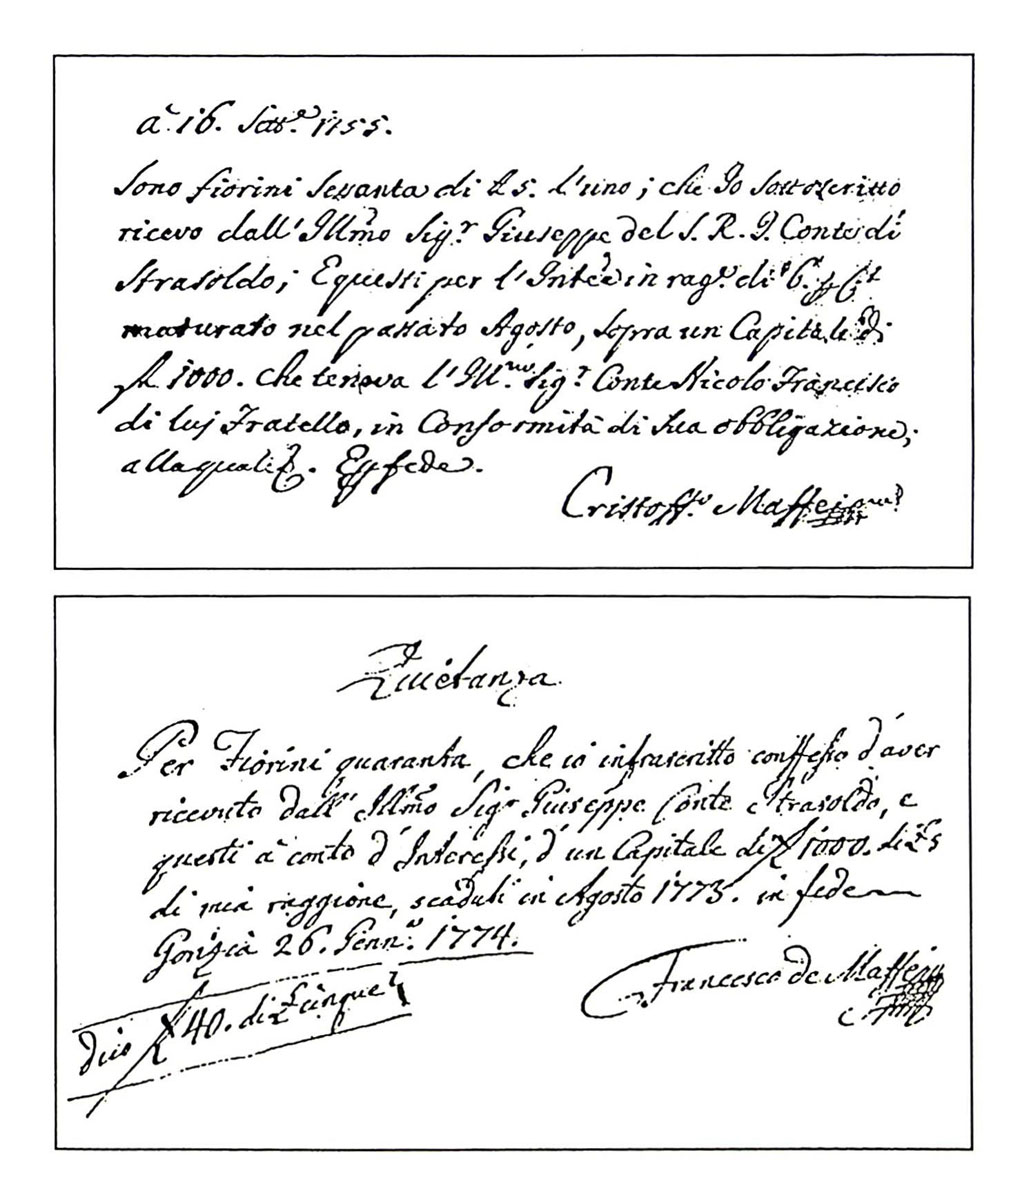 à 16. Sett.e 1755.
Sono fiorini Sessanta di £ 5. l'uno; che Io Sottoscritto
ricevo dall' Illmo Sig.r Giuseppe del S. R. I. Conte di
Strasoldo; E questi per l'Inte in rag.e di 6. p C.t
maturato nel passato Agosto, sopra un Capitale di
fl 1000. che teneva l'Ill.mo Sig.r Conte Nicolo Francisco
di lui Fratello, in Conformità di sua obbligazione;
alla quale. E p fede.
Cristoff.o Maffei
Quietanza
Per Fiorini quaranta, che io infrascritto confesso d'aver
ricevuto dall' Illmo Sigr Giuseppe Conte Strasoldo, e
questi à conto d'Interessi, d'un Capitale di fl 1000. di £ 5
di mia raggione, scaduti in Agosto 1773. in fede
Gorizia 26. Genn.o 1774.
Francesco de Maffei
dico fl 40. di £ cinque